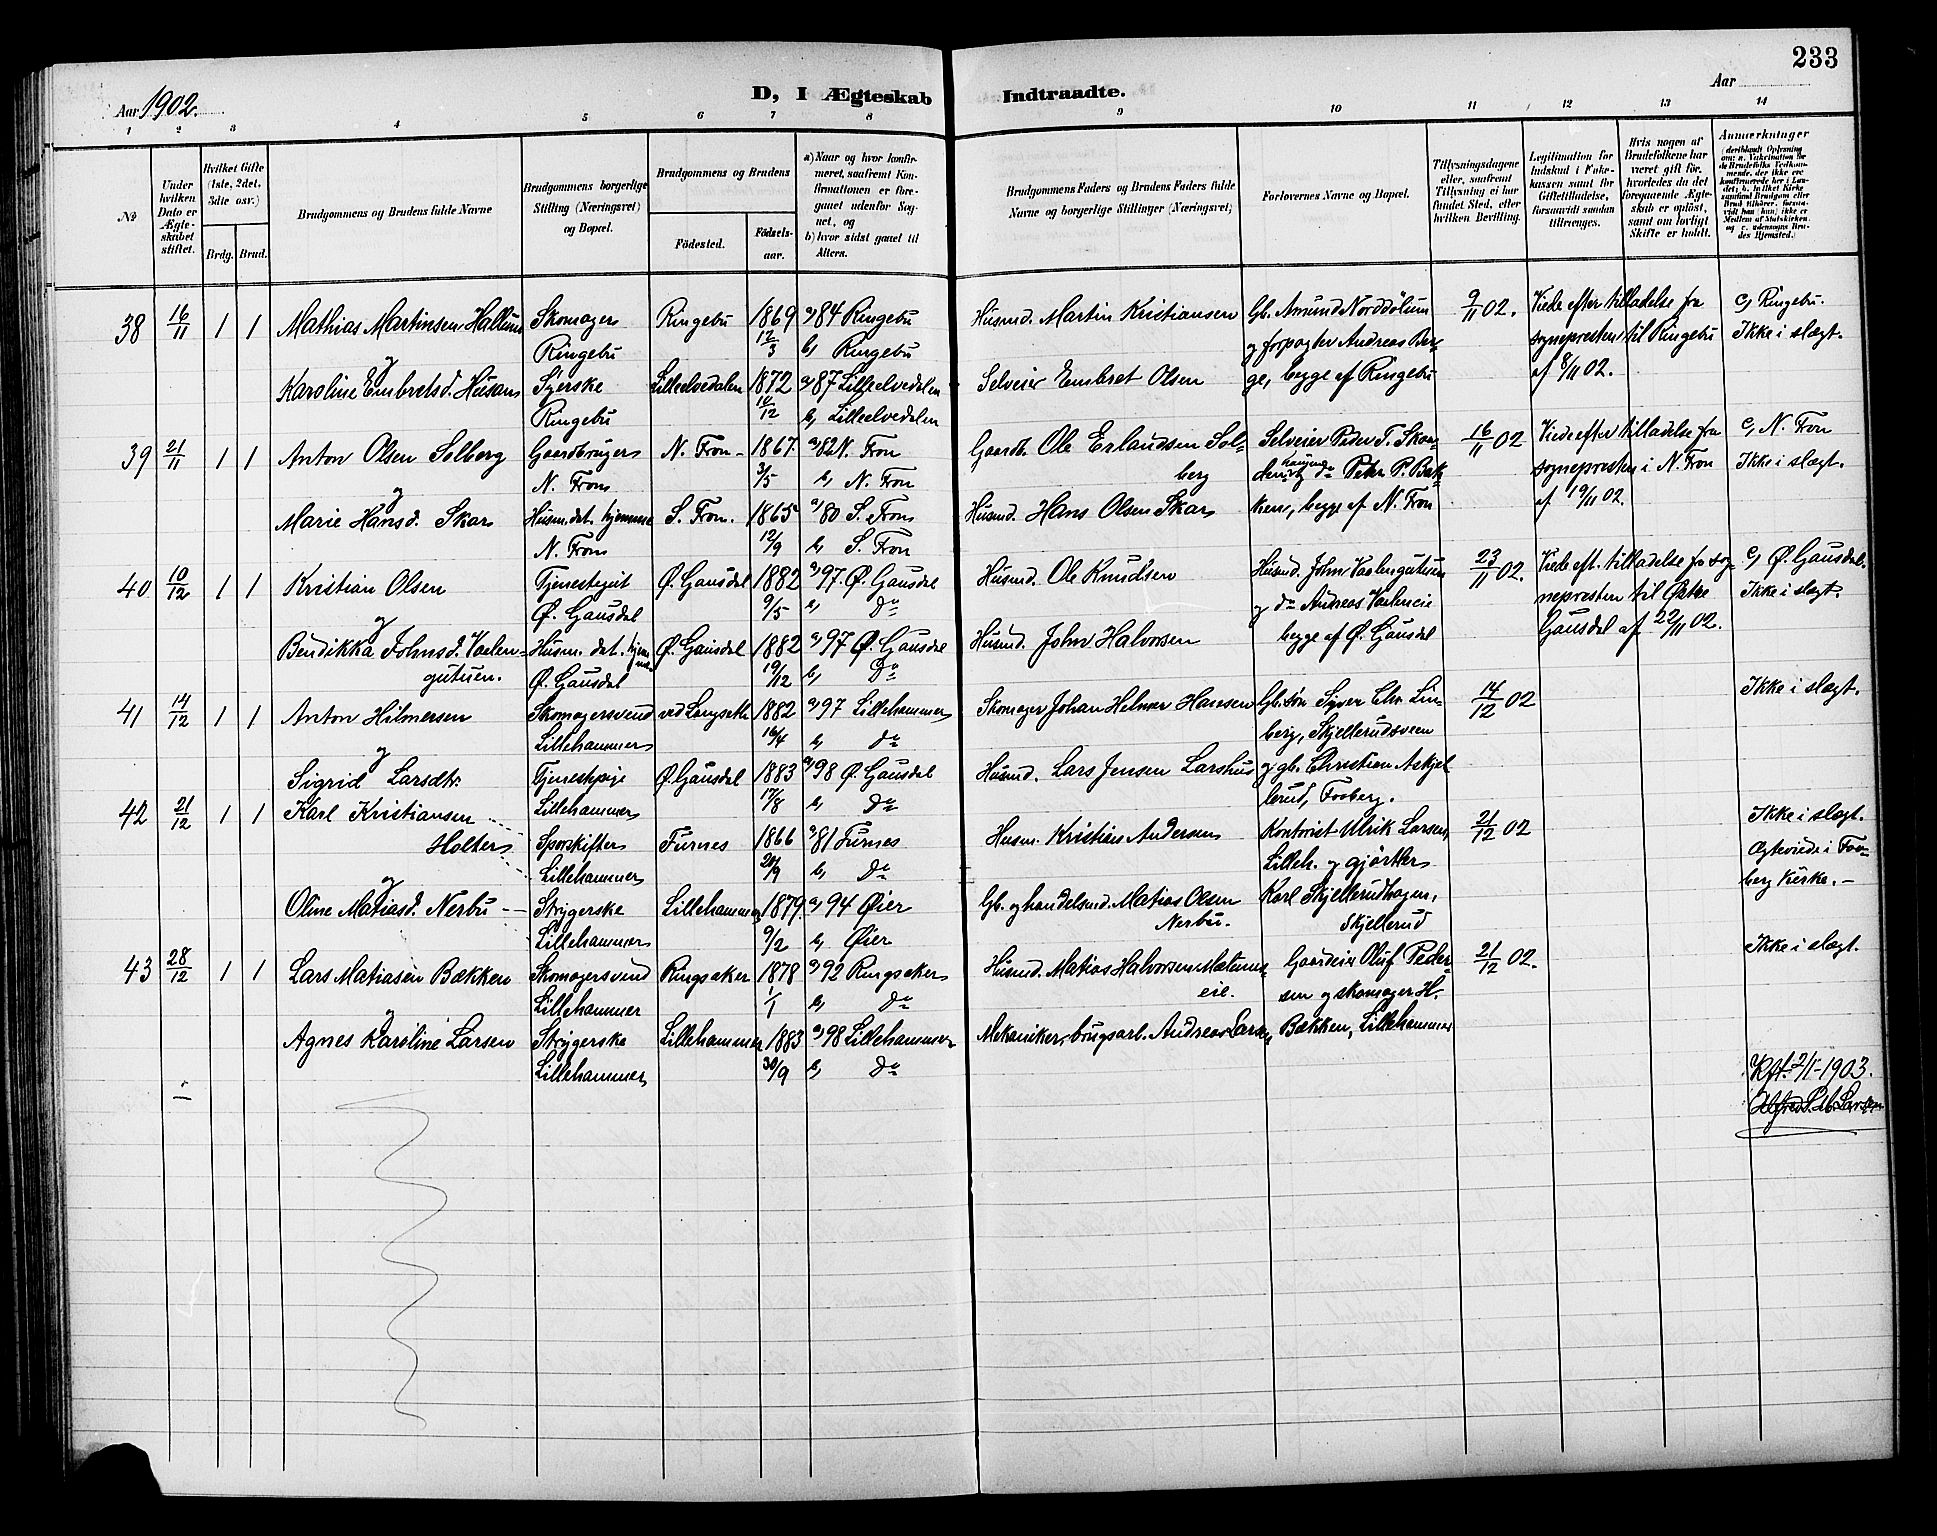 233
Aar 1902.
D, I Ægteskab Indtraadte.
Aar
1 2 3 4 5 6 7 8 9 10 11 12 13 14
No
Under hvilken Dato er Ægteskabet stiftet.
Hvilket Gifte (1ste, 2det, 3dte osv.)
Brdg. Brud.
Brudgommens og Brudens fulde Navne
Brudgommens borgerlige Stilling (Næringsvei) og Bopæl.
Brudgommens og Brudens
Födested.
Födselsaar.
a) Naar og hvor konfirmeret, saafremt Konfirmationen er foregaaet udenfor Sognet, og
b) hvor sidst gaaet til Alters.
Brudgommens Faders og Brudens Faders fulde Navne og borgerlige Stillinger (Næringsvei)
Forlovernes Navne og Bopæl.
Tillysningsdagene eller, saafremt Tillysning ei har fundet Sted, efter hvilken Bevilling.
Legitimation for Indskud i Enkekassen samt for Giftetilladelse, forsaavidt saadan tiltrænges.
Hvis nogen af Brudefolkene har været gift för, hvorledes da det foregaaende Ægteskab er oplöst, samt om lovligt Skifte er holdt.
Anmerkninger
38 16/11 1 1 Mathias Martinsen Hallum Skomager Ringebu 1869 a) 84 Ringebu Husmd. Martin Kristiansen Gb. Amund Norddölum 9/11 02. Viede efter tilladelse fra c) Ringebu.
Ringebu 12/3 b) Ringebu og forpagter Andreas Ber- sognepresten til Ringebu Ikke i slægt.
og
Karoline Embretsd. Husan Syerske Lilleelvedalen 1872 a) 87 Lilleelvedalen Selveier Embret Olsen ge, begge af Ringebu af 8/11 02.
Ringebu b) Lilleelvedalen
39 21/11 1 1 Anton Olsen Solberg Gaardbruger N. Fron 1867 a) 82 N. Fron Gaardb. Ole Erlandsen Sol- Selveier Peder T. 16/11 02 Viede efter tilladelse fra c) N. Fron
N. Fron 3/5 b) N. Fron berg Peter P. Bak- sognepresten i N. Fron Ikke i slægt.
og
Marie Hansd. Skar Husm.dat. hjemme S. Fron. 1865 a) 80 S. Fron Husmd. Hans Olsen Skar ken, begge af N. Fron af 19/11 02.
N. Fron 12/9 b) S. Fron
40 10/12 1 1 Kristian Olsen Tjenestegut Ø. Gausdal 1882 a) 97 Ø. Gausdal Husmd. Ole Knudsen Husmd. John Vaalengutuen 23/11 02. Viede eft. tilladelse fra sog- c) Ø. Gausdal.
Ø. Gausdal 9/5 b) Do og do Andreas nepresten til Østre Ikke i slægt.
og
Bendikka Johnsd. Vaalen- Husm. dat. hjemme Ø. Gausdal 1882 a) 97 Ø. Gausdal Husmd. John Halvorsen begge af Ø. Gausdal Gausdal af 22/11 02.
gutuen. Ø. Gausdal 19/12 b) Do
41 14/12 1 1 Anton Hilmersen Skomagersvend ved Langseth 1882 a) 97 Lillehammer Skomager Johan Helmer Hansen Gb.sön Syver Chr. Lin- 14/12 02 Ikke i slægt.
Lillehammer 16/4 b) do berg, Skjellerudsveen
og
Sigrid Larsdtr. Tjenestepige Ø. Gausdal 1883 a) 98 Ø. Gausdal Husmd. Lars Jensen Larshus og gb. Christian Askjel
Lillehammer 17/8 b) do lerud, Faaberg.
42 21/12 1 1 Karl Kristiansen
Holter Sporskifter Furnes 1866 a) 81 Furnes Husm. Kristian Andersen Kontorist Ulrik Larsen, 21/12 02 Ikke i slægt.
Lillehammer 20/9 b) do Lilleh. og gjörtler Ægteviede i Faa-
og
Oline Matiasd. Nerbu Strygerske Lillehammer 1879. a) 94 Øier Gb. og handelsmd. Matias Olsen Karl Skjellerudhagen, berg Kirke.
Lillehammer 9/2 b) Øier Nerbu. Skjellerud
43 28/12 1 1 Lars Matiasen Bækken Skomagersvend Ringsaker 1878 a) 92 Ringsaker Husmd. Matias Halvorsen Gaardeier Oluf Peder- 21/12 02. Ikke i slægt.
Lillehammer 1/1 b) do eie. sen og skomager H.
og
Agnes Karoline Larsen Strygerske Lillehammer 1883 a) 98 Lillehammer Mekaniker, brugsarb. Andreas Larsen Bækken, Lillehammer
Lillehammer 30/9 b) do
Kft. 2/1-1903.